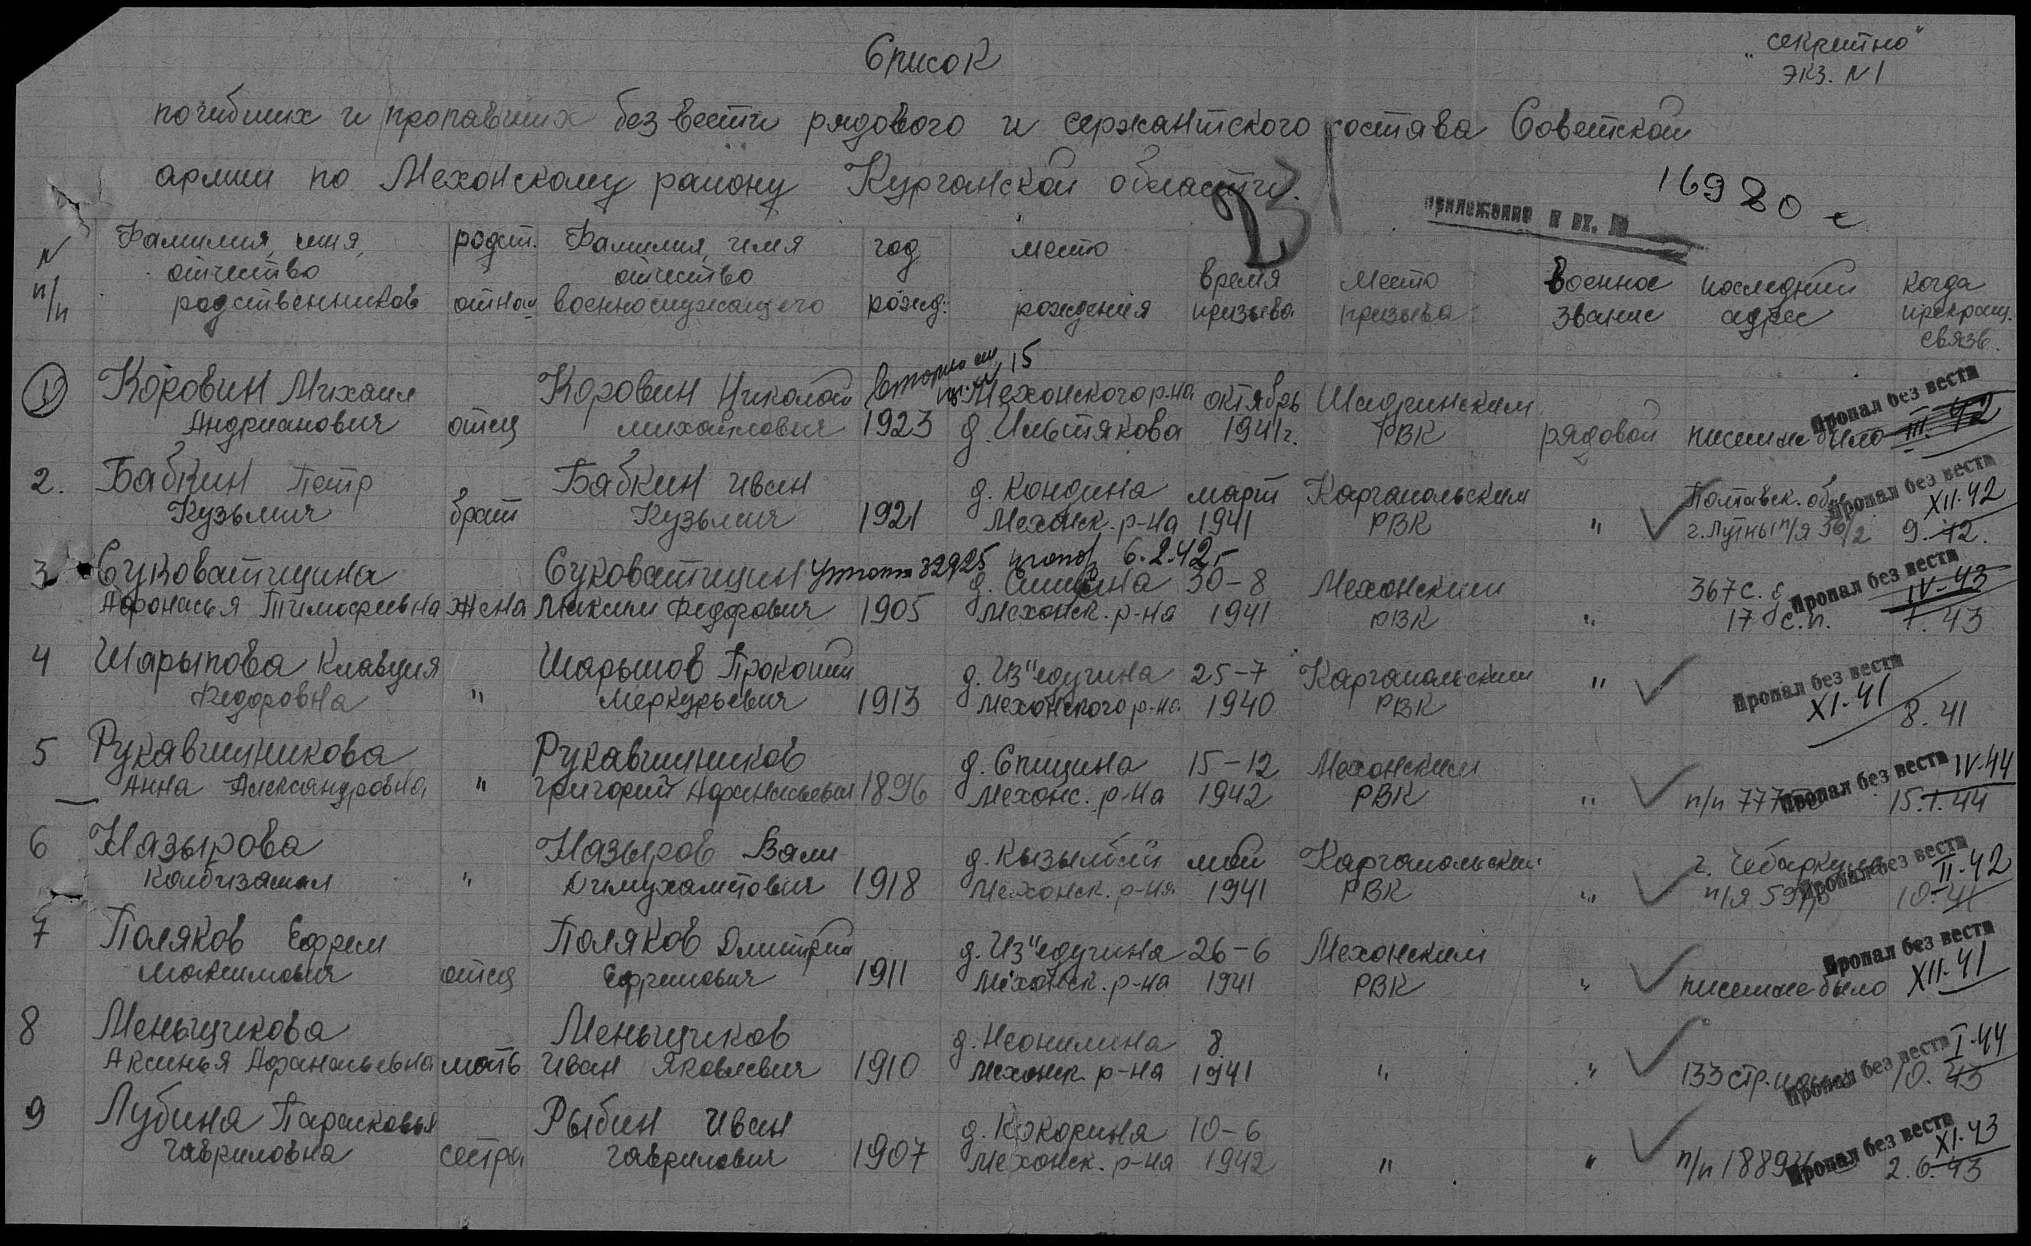 Список
„секретно"
экз. N 1
погибших и пропавших без вести рядового и сержантского состава Советской
армии по Мехонскому району Курганской области.
23
16980 с
приложение к вх. №
N п/п
Фамилия, имя, отчество родственников
родст. отнош
Фамилия, имя отчество военнослужащего
год рожд.
место рождения
время призыва
место призыва
военное звание
последний адрес
когда прекращ. связь.
1 Коровин Михаил Коровин Николай Мехонского р-на октябрь Шадринским Пропал без вести
Андрианович отец Михайлович 1923 д. Ильтякова 1941г. РВК рядовой писем не было III. 42
2. Бабкин Петр Бабкин Иван д. Кондина март Каргапольским Полтавск. обл. Пропал без вести XII-42
Кузьмич брат Кузьмич 1921 Мехонск. р-на 1941 РВК " г. Лубны п/я 9. 42.
3 Суковатицина Суковатицин 32925 6.2.42г
д. 30-8 Мехонским 367 с. д. Пропал без вести IV-43
Афонасья Тимофеевна жена Максим Федорович 1905 Мехонск. р-на 1941 РВК " 17 с.п. 1. 43
4 Шарыпова Клавдия Шарыпов Прокопий д. Из"едугина 25-7 Каргапольским " Пропал без вести
Федоровна " Меркурьевич 1913 Мехонского р-на 1940 РВК XI-41 8. 41
5 Рукавишникова Рукавишников д. Спицина 15-12 Мехонским Пропал без вести IV-44
Анна Александровна " Григорий Афанасьевич 1896 Мехонс. р-на 1942 РВК " п/п 15.1.44
6 Назырова Назыров Вали д. Кызылбай май Каргапольским г. Чебаркуль Пропал без вести II-42
" 1918 Мехонск. р-на 1941 РВК " п/я 10-41
7 Поляков Ефрем Поляков Дмитрий д. Из"едугина 26-6 Мехонским Пропал без вести
Максимович отец Ефремович 1911 Мехонск. р-на 1941 РВК " писем не было XII-41
8 Меньщикова Меньщиков д. Неонилина 8. Пропал без вести I-44
Аксинья Афанасьевна мать Иван Яковлевич 1910 Мехонск р-на 1941 " " 133 стр. 10. 43
9 Лубина Парасковья Рыбин Иван д. Кокорина 10-6 Пропал без вести XI-43
Гавриловна сестра Гаврилович 1907 Мехонск. р-на 1942 " " п/п 2. 6. 43